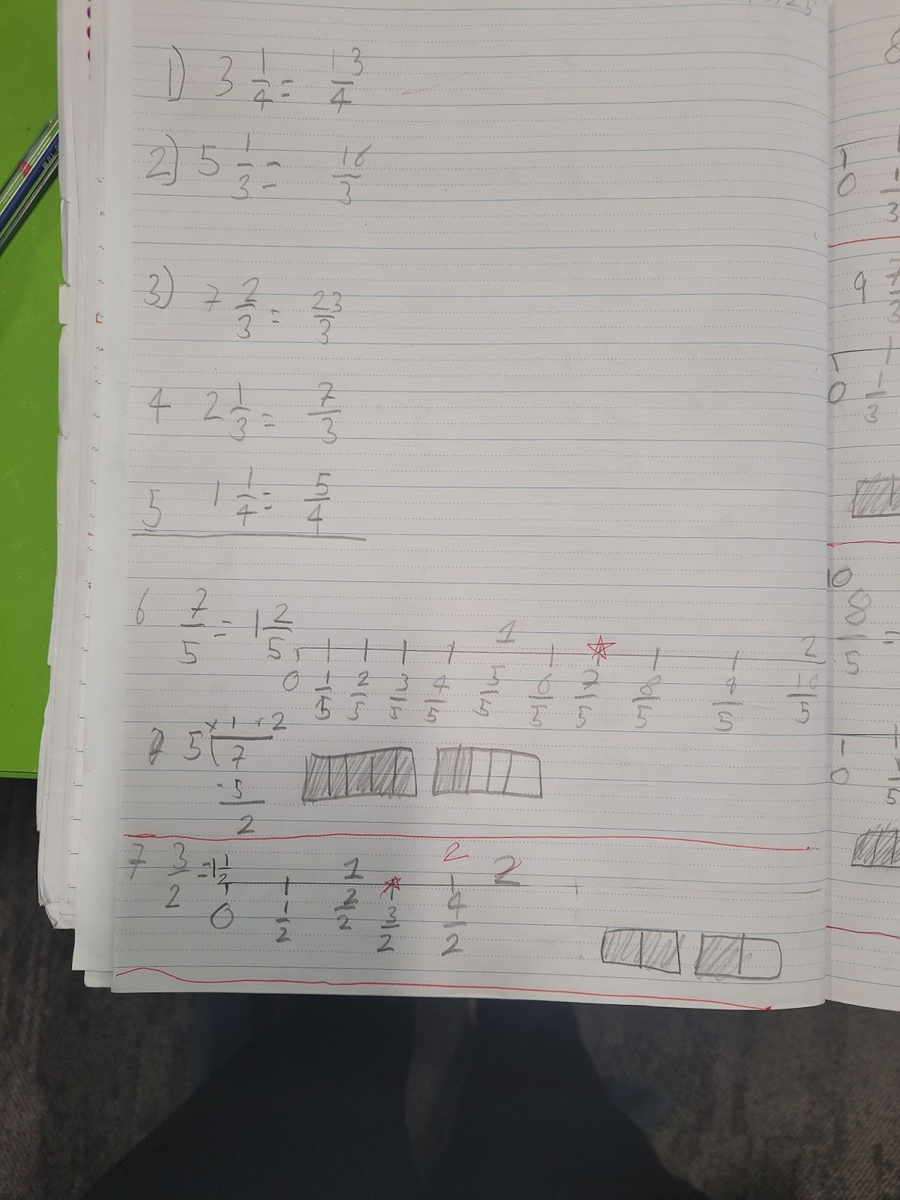 1) 3 1/4 = 13/4
2) 5 1/3 = 16/3
3) 7 2/3 = 23/3
4 2 1/3 = 7/3
5 1 1/4 = 5/4
6 7/5 = 1 2/5
1 2
0 1/5 2/5 3/5 4/5 5/5 6/5 7/5 8/5 9/5 10/5
1 r 2
5 7
-5
2
7 3/2 = 1 1/2
1 2 2
0 1/2 2/2 3/2 4/2
8
0 1/3
9 7/3
0 1/3
10
8/5 =
0 1/5